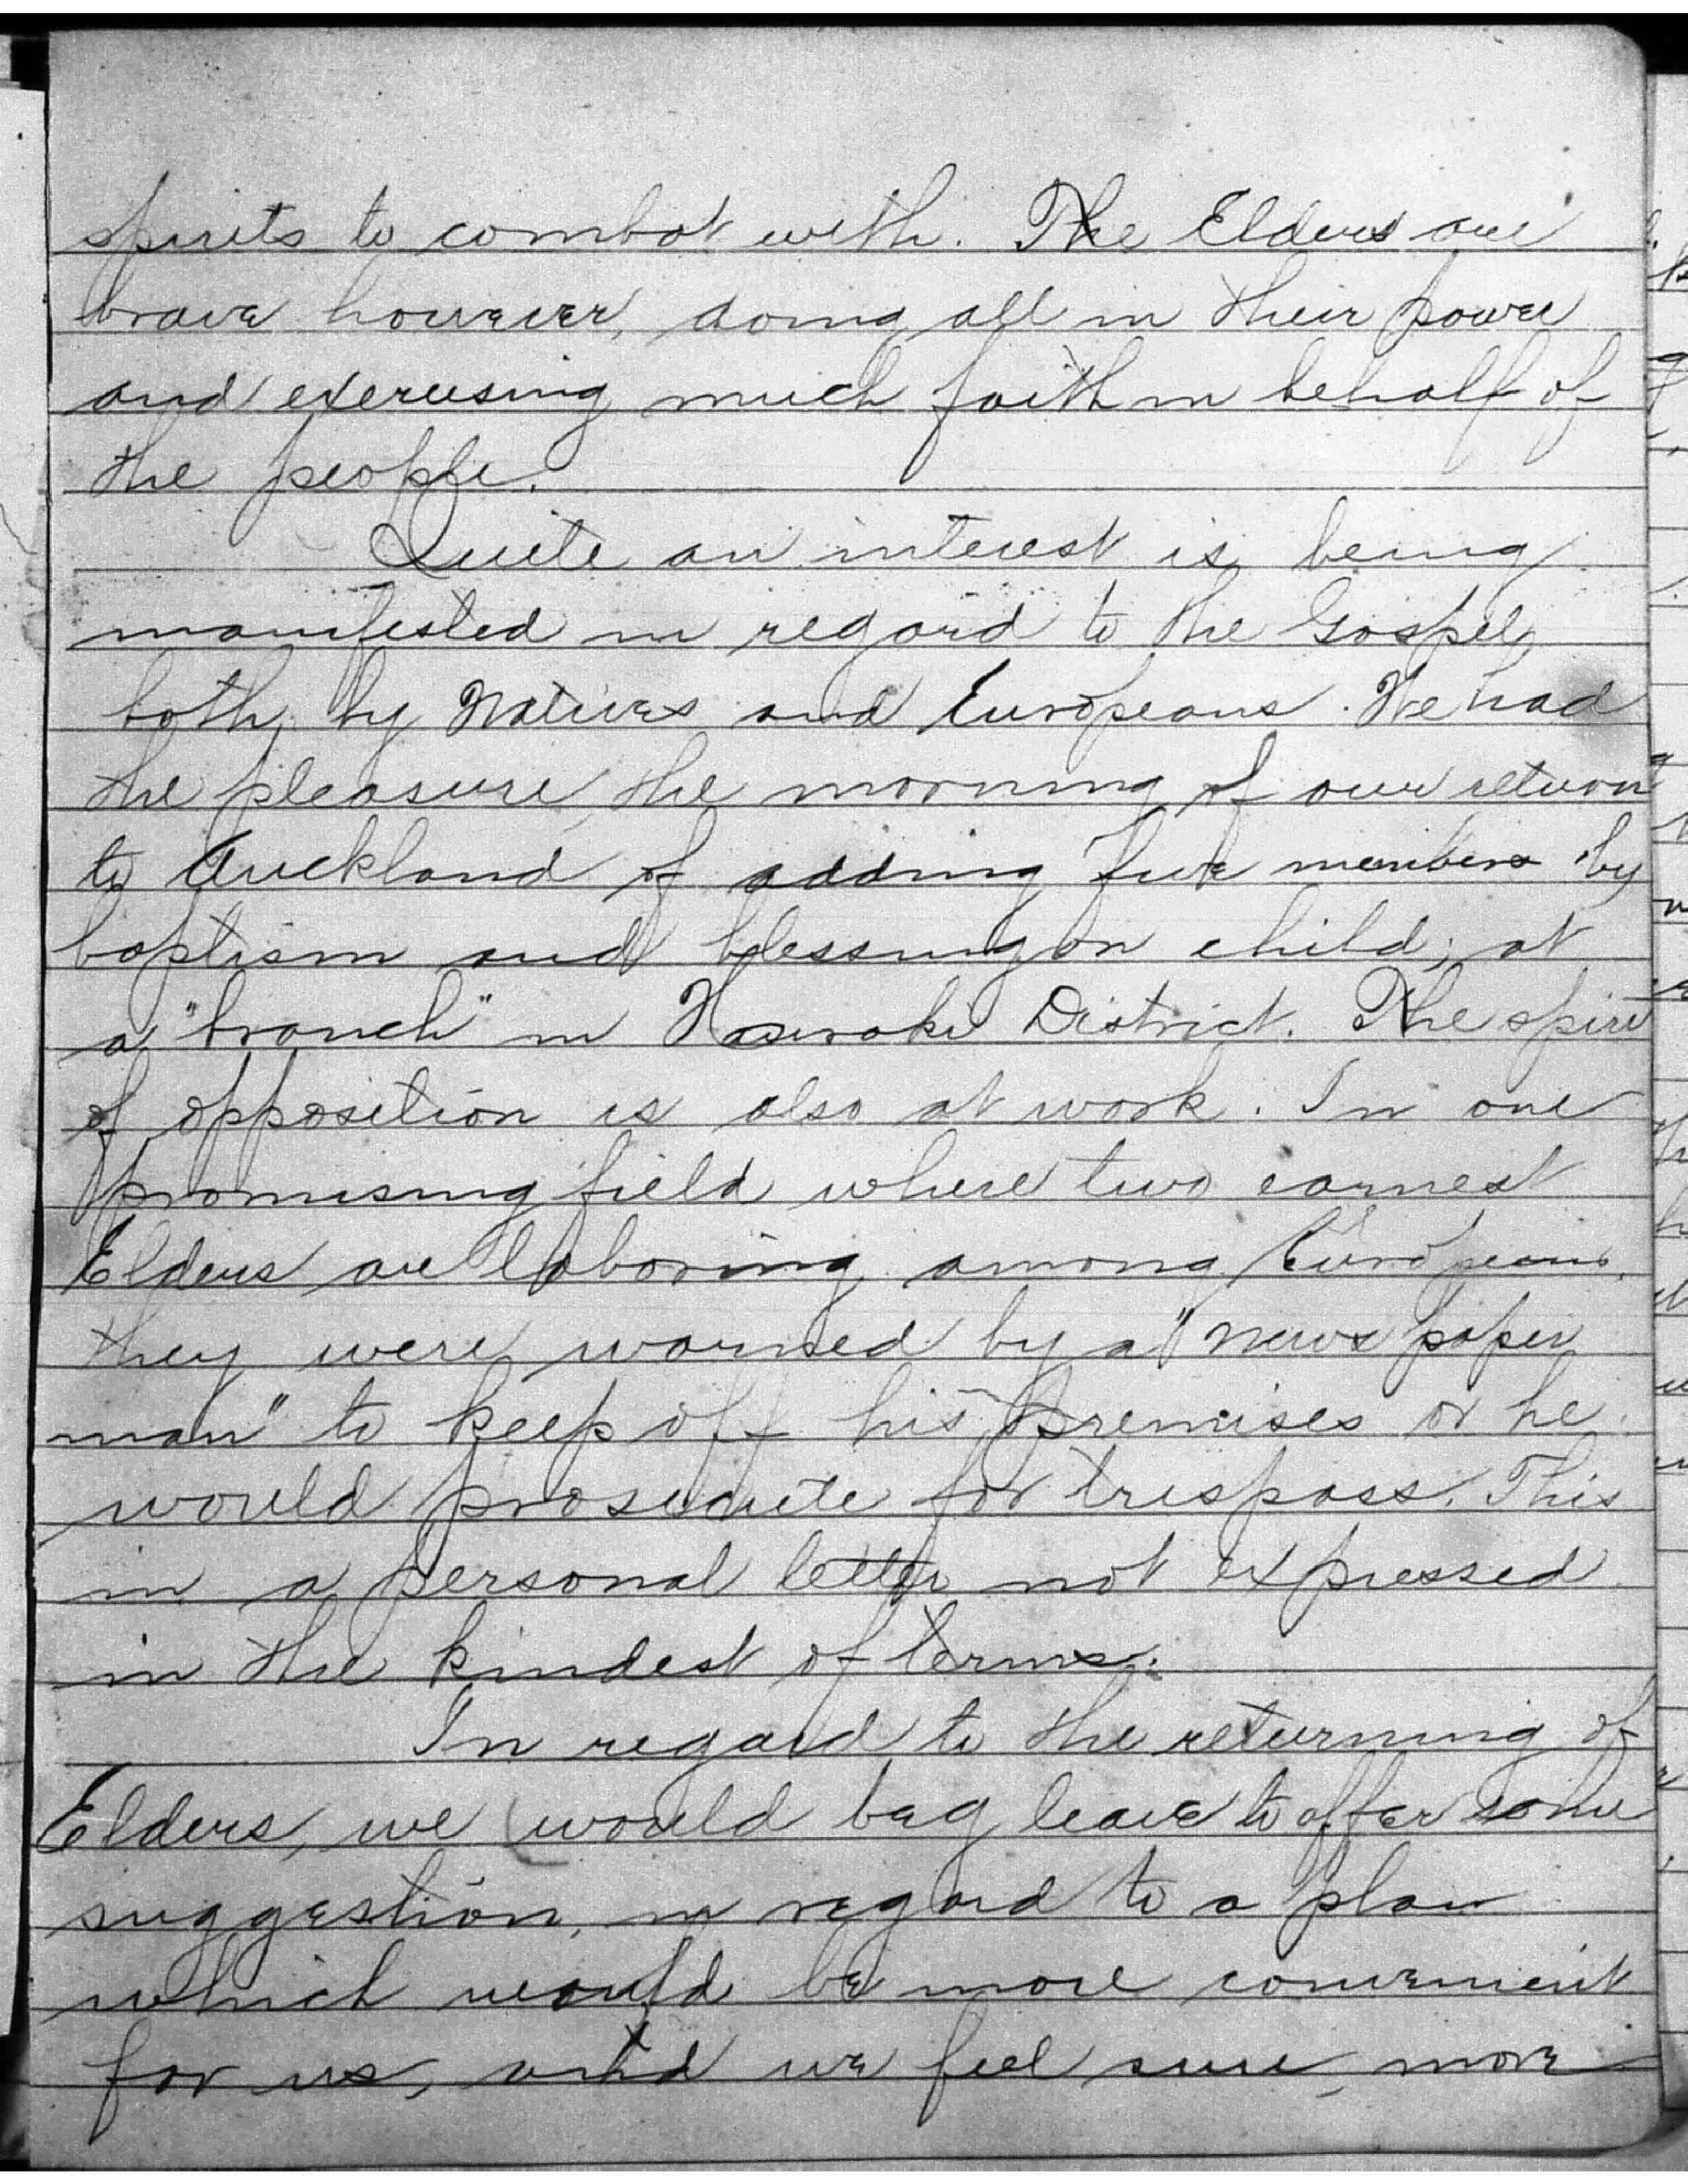 spirits to combat with. The Elders are
brave however, doing all in their power
and exercising much faith in behalf of
the people.
Quite an interest is being
manifested in regard to the Gospel,
both by Natives and Europeans. We had
the pleasure, the morning of our return
to Auckland of adding five members by
baptism and blessing on child; at
a "branch" in Hauraki District. The spirit
of opposition is also at work. In one
promising field where two earnest
Elders are laboring among Europeans,
they were warned by a "news paper
man" to keep off his premises or he
would prosecute for trespass. This
in a personal letter not expressed
in the kindest of terms.
In regard to the returning of
Elders, we would beg leave to offer some
suggestion, in regard to a plan
which would be more convenient
for us, and we feel sure, more